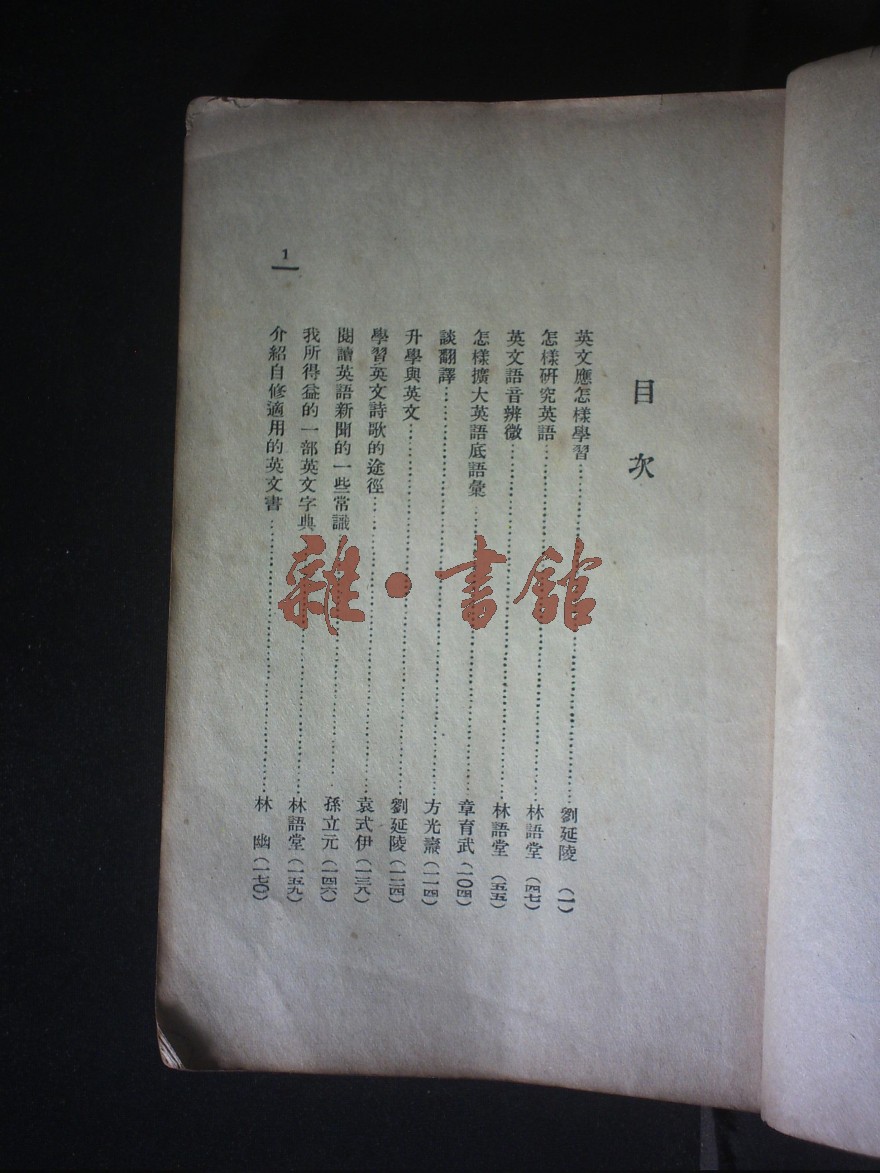 目次
英文應怎樣學習……劉延陵(一)
怎樣研究英語……林語堂(四七)
英文語音辨微……林語堂(五五)
怎樣擴大英語底語彙……章育武(一〇四)
談翻譯……方光燾(一一四)
升學與英文……劉延陵(一二四)
學習英文詩歌的途徑……袁式伊(一三八)
閱讀英語新聞的一些常識……孫立元(一四六)
我所得益的一部英文字典……林語堂(一五九)
介紹自修適用的英文書……林幽(一七〇)
1
雜·書館